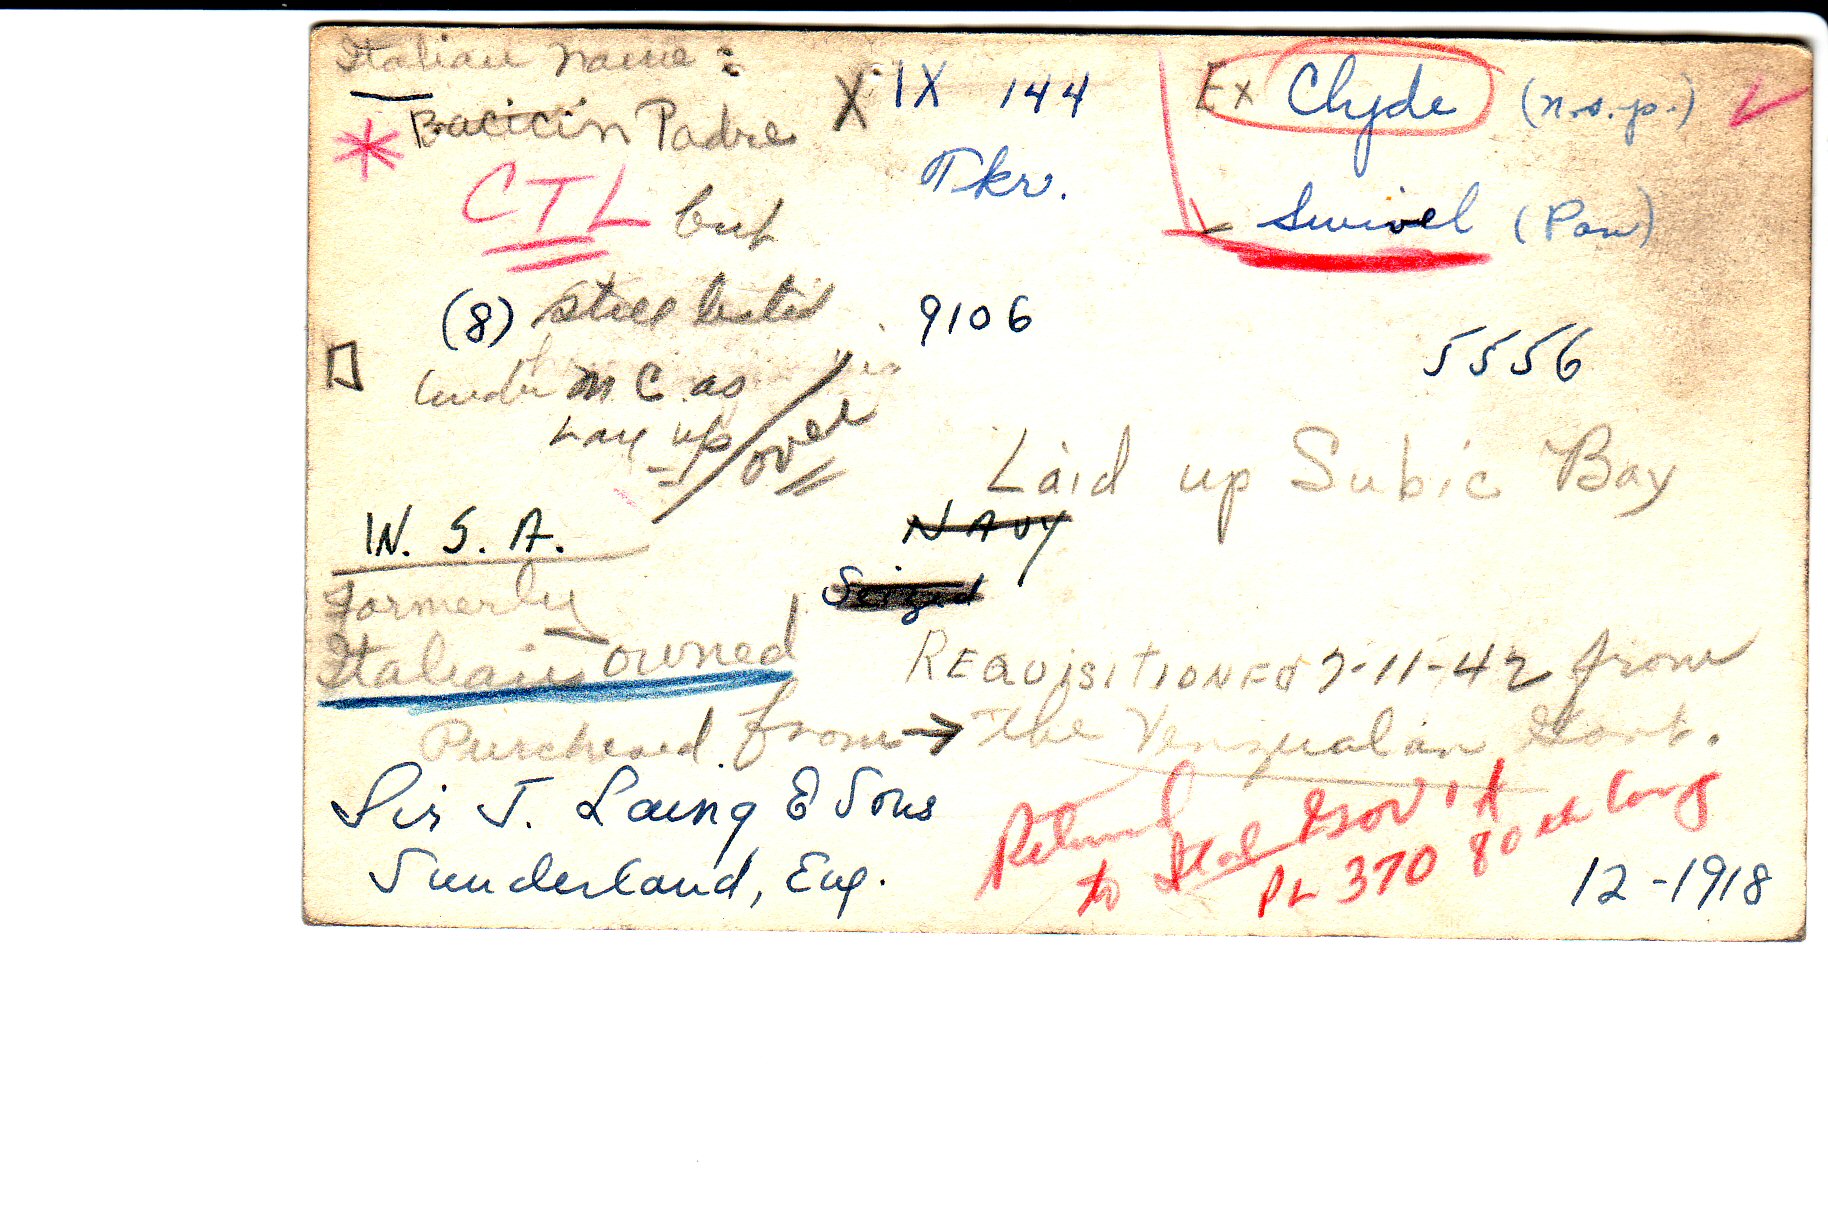 Italian name:
Bacicin Padre X IX 144 Ex Clyde (n.s.p.)
CTL but Tkr. Swivel (Pan)
(8) still listed 9106 5556
under MC as
Lay up / over
Laid up Subic Bay
W. S. A. NAVY
Formerly Seized
Italian owned REQUISITIONEd 7-11-42 from
Purchased from → The Venzualan Govt.
Sir J. Laing & Sons Returned to Ital Gov't
Sunderland, Eng. PL 370 80th Cong 12-1918